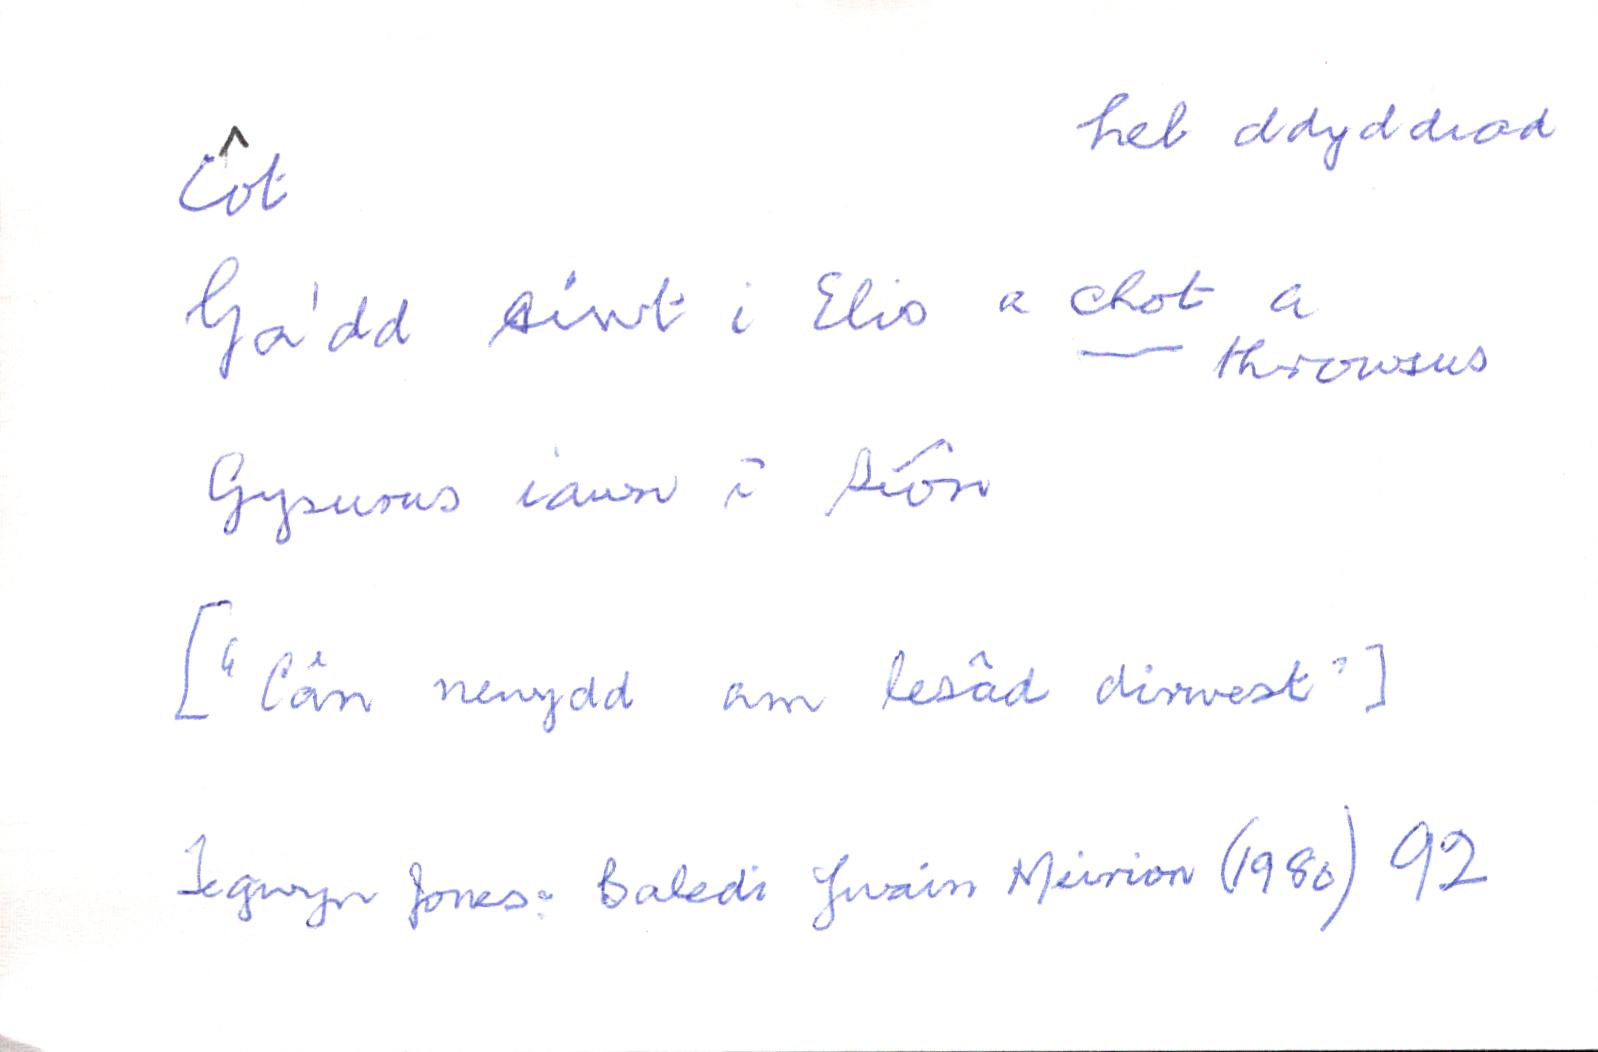 heb ddyddiad
Côt
Ga'dd siwt i Elis a chot a
throwsus
Gysurus iawn i Siôn
["Cân newydd am lesâd dirwest"]
Tegwyn Jones: Baledi Ywain Meirion (1980) 92